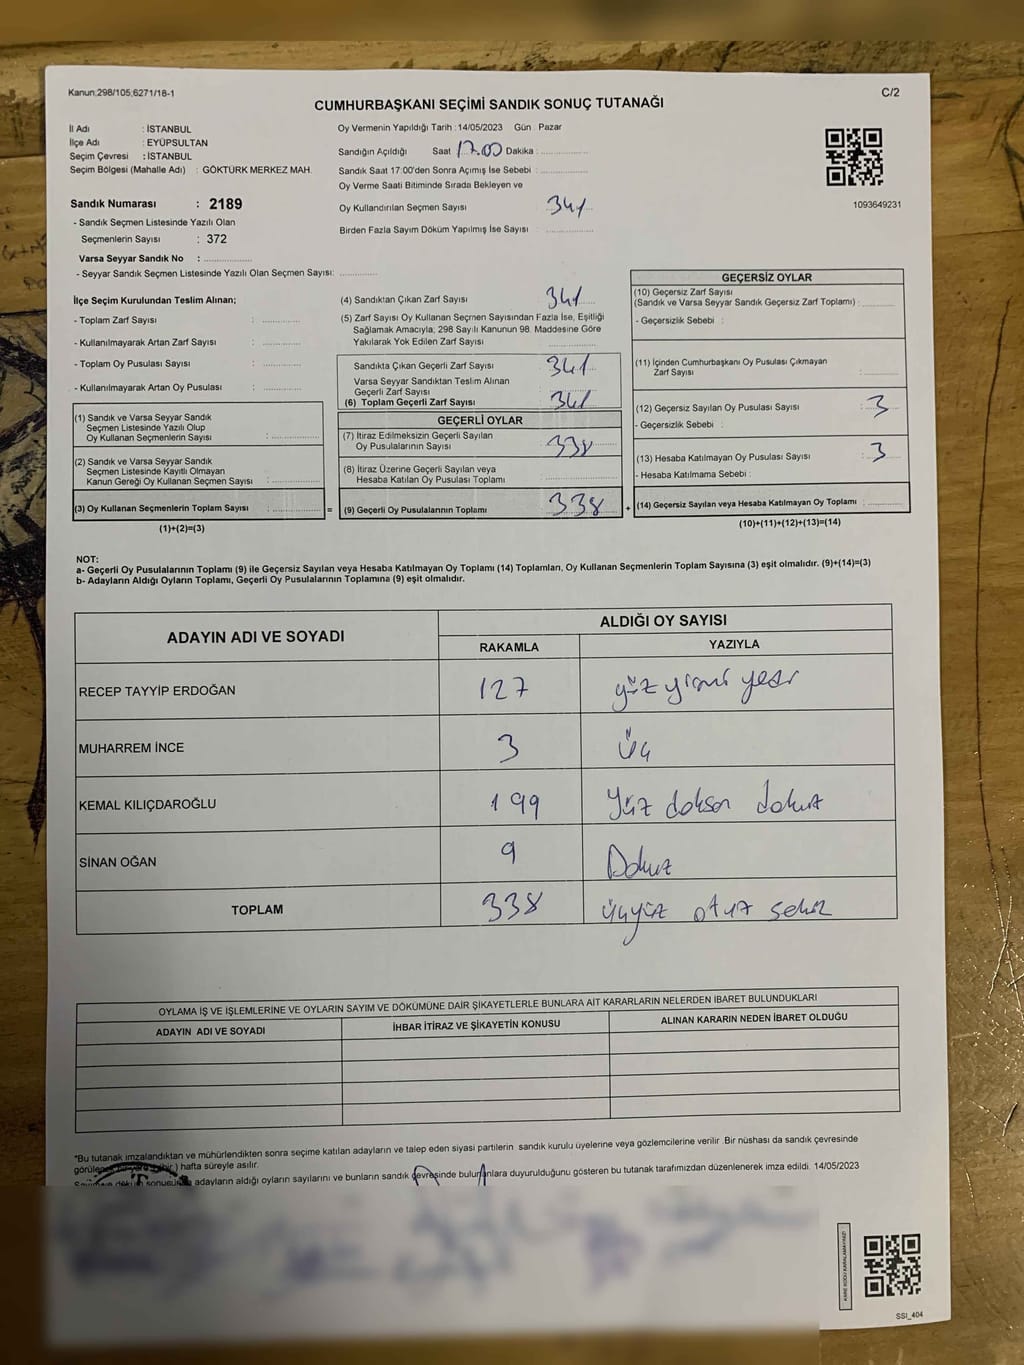 Kanun;298/105;6271/18-1
C/2
CUMHURBAŞKANI SEÇİMİ SANDIK SONUÇ TUTANAĞI
İl Adı : İSTANBUL
İlçe Adı : EYÜPSULTAN
Seçim Çevresi : İSTANBUL
Seçim Bölgesi (Mahalle Adı) : GÖKTÜRK MERKEZ MAH.
Oy Vermenin Yapıldığı Tarih : 14/05/2023 Gün : Pazar
Sandığın Açıldığı Saat 17.00 Dakika : ..............
Sandık Saat 17:00'den Sonra Açımış İse Sebebi : ..............
Oy Verme Saati Bitiminde Sırada Bekleyen ve
Oy Kullandırılan Seçmen Sayısı 341
Birden Fazla Sayım Döküm Yapılmış İse Sayısı ..............
1093649231
Sandık Numarası : 2189
- Sandık Seçmen Listesinde Yazılı Olan
Seçmenlerin Sayısı : 372
Varsa Seyyar Sandık No : ..............
- Seyyar Sandık Seçmen Listesinde Yazılı Olan Seçmen Sayısı: ............
İlçe Seçim Kurulundan Teslim Alınan;
- Toplam Zarf Sayısı : ............
- Kullanılmayarak Artan Zarf Sayısı : ............
- Toplam Oy Pusulası Sayısı : ............
- Kullanılmayarak Artan Oy Pusulası : ............
(1) Sandık ve Varsa Seyyar Sandık
Seçmen Listesinde Yazılı Olup
Oy Kullanan Seçmenlerin Sayısı : ............
(2) Sandık ve Varsa Seyyar Sandık
Seçmen Listesinde Kayıtlı Olmayan
Kanun Gereği Oy Kullanan Seçmen Sayısı : ............
(3) Oy Kullanan Seçmenlerin Toplam Sayısı : ............ =
(1)+(2)=(3)
(4) Sandıktan Çıkan Zarf Sayısı 341
(5) Zarf Sayısı Oy Kullanan Seçmen Sayısından Fazla İse, Eşitliği
Sağlamak Amacıyla; 298 Sayılı Kanunun 98. Maddesine Göre
Yakılarak Yok Edilen Zarf Sayısı ............
Sandıkta Çıkan Geçerli Zarf Sayısı 341
Varsa Seyyar Sandıktan Teslim Alınan
Geçerli Zarf Sayısı
(6) Toplam Geçerli Zarf Sayısı 341
GEÇERLİ OYLAR
(7) İtiraz Edilmeksizin Geçerli Sayılan
Oy Pusulalarının Sayısı 338
(8) İtiraz Üzerine Geçerli Sayılan veya
Hesaba Katılan Oy Pusulası Toplamı ............
(9) Geçerli Oy Pusulalarının Toplamı 338 +
GEÇERSİZ OYLAR
(10) Geçersiz Zarf Sayısı
(Sandık ve Varsa Seyyar Sandık Geçersiz Zarf Toplamı) : ............
- Geçersizlik Sebebi :
(11) İçinden Cumhurbaşkanı Oy Pusulası Çıkmayan
Zarf Sayısı : ............
(12) Geçersiz Sayılan Oy Pusulası Sayısı : 3
- Geçersizlik Sebebi :
(13) Hesaba Katılmayan Oy Pusulası Sayısı : 3
- Hesaba Katılmama Sebebi :
(14) Geçersiz Sayılan veya Hesaba Katılmayan Oy Toplamı ............
(10)+(11)+(12)+(13)=(14)
NOT:
a- Geçerli Oy Pusulalarının Toplamı (9) ile Geçersiz Sayılan veya Hesaba Katılmayan Oy Toplamı (14) Toplamları, Oy Kullanan Seçmenlerin Toplam Sayısına (3) eşit olmalıdır. (9)+(14)=(3)
b- Adayların Aldığı Oyların Toplamı, Geçerli Oy Pusulalarının Toplamına (9) eşit olmalıdır.
ADAYIN ADI VE SOYADI ALDIĞI OY SAYISI
RAKAMLA YAZIYLA
RECEP TAYYİP ERDOĞAN 127 yüz yirmi yedi
MUHARREM İNCE 3 üç
KEMAL KILIÇDAROĞLU 199 Yüz doksan dokuz
SİNAN OĞAN 9 Dokuz
TOPLAM 338 üçyüz otuz sekiz
OYLAMA İŞ VE İŞLEMLERİNE VE OYLARIN SAYIM VE DÖKÜMÜNE DAİR ŞİKAYETLERLE BUNLARA AİT KARARLARIN NELERDEN İBARET BULUNDUKLARI
ADAYIN ADI VE SOYADI İHBAR İTİRAZ VE ŞİKAYETİN KONUSU ALINAN KARARIN NEDEN İBARET OLDUĞU
*Bu tutanak imzalandıktan ve mühürlendikten sonra seçime katılan adayların ve talep eden siyasi partilerin sandık kurulu üyelerine veya gözlemcilerine verilir .Bir nüshası da sandık çevresinde
hafta süreyle asılır.
adayların aldığı oyların sayılarını ve bunların sandık çevresinde bulunanlara duyurulduğunu gösteren bu tutanak tarafımızdan düzenlenerek imza edildi. 14/05/2023
SSI_404